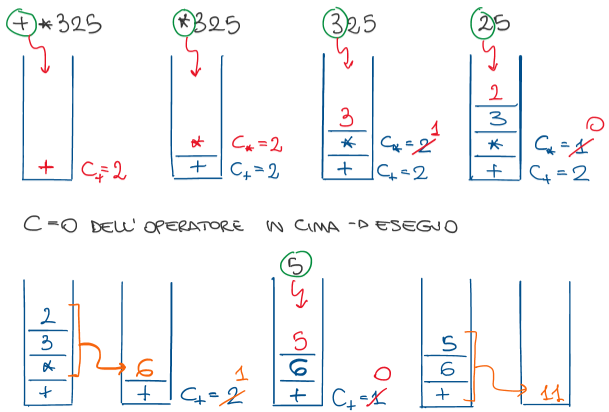 +*325 *325 325 25
+ C+=2
* C*=2
+ C+=2
3
* C*=2 1
+ C+=2
2
3
* C*=1 0
+ C+=2
C=0 DELL'OPERATORE IN CIMA → ESEGUO
5
2
3
*
+
6 1
+ C+=2
5
6 0
+ C+=1
5
6
+
11